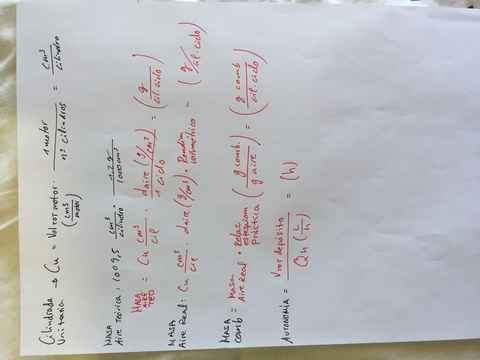 Cilindrada Unitaria → Cu = Vol TOT motor (cm³/motor) · 1 motor / nº cilindros = cm³/cilindro
MASA Aire Teórica: 1009,5 cm³/cilindro · 1,2 g/1000 cm³
MASA AIRE TEO = Cu cm³/cil · daire (g/cm³)/1 ciclo = (g/cil·ciclo)
MASA Aire Real: Cu cm³/cil · daire (g/cm³) · Rendim volumétrico = (g/cil·ciclo)
MASA comb = Masa Aire Real · Relac estequiom Práctica (g comb./g aire) = (g comb/cil·ciclo)
AUTONOMÍA = VTOT depósito / Qh (L/h) = (h)